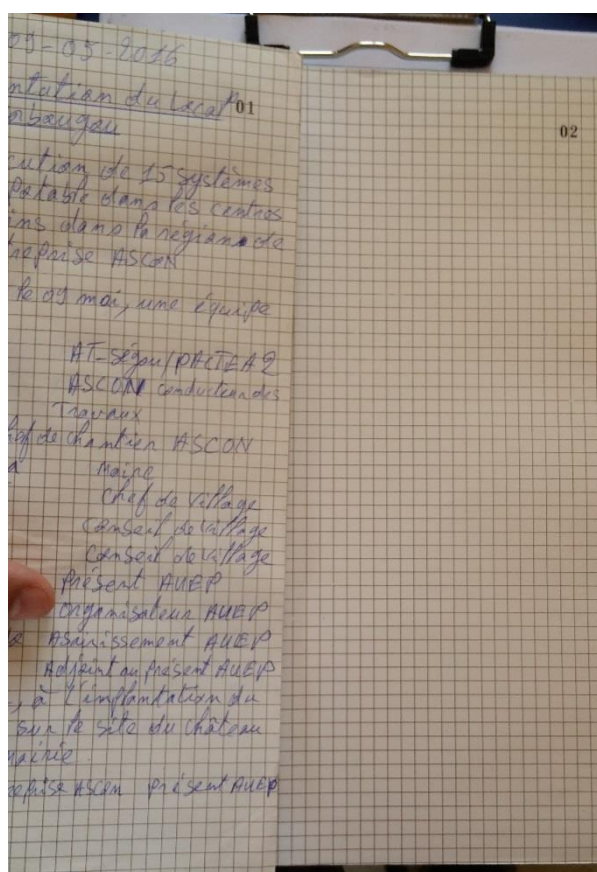 09-05-2016
ntation du Local 01
02
cution de 15 systèmes
Potable dans les centres
ins dans la région de
reprise ASCON
le 09 mai, une équipe
AT-Ségou/PACTEA2
ASCON conducteur des
Travaux
hef de chantier ASCON
Maire
Chef de village
Conseil de village
Conseil de village
Présent AUEP
Organisateur AUEP
Assainissement AUEP
Adjoint au présent AUEP
, à l'implantation du
sur le site du château
mairie.
reprise ASCON présent AUEP